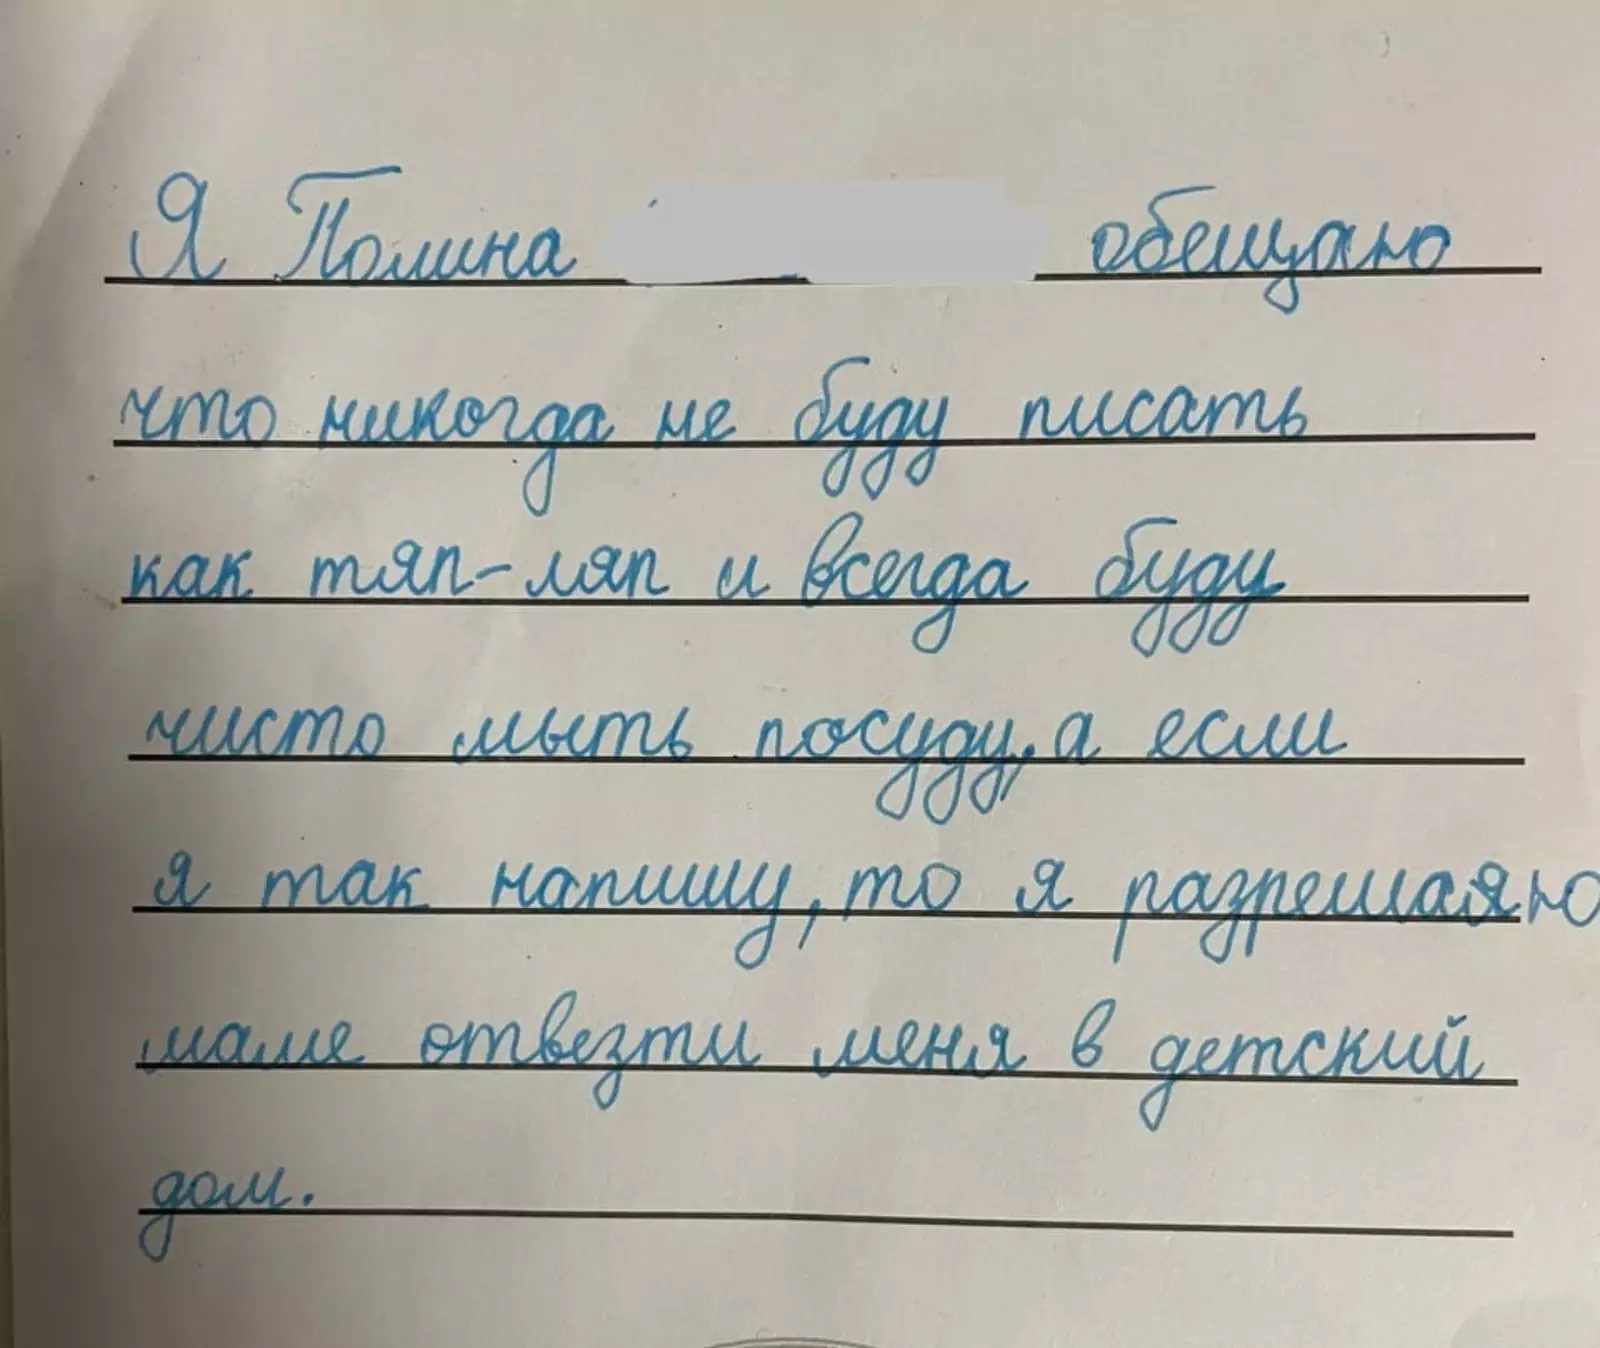 Я Полина обещаю
что никогда не буду писать
как тяп-ляп и всегда буду
чисто мыть посуду, а если
я так напишу, то я разрешаю
маме отвезти меня в детский
дом.